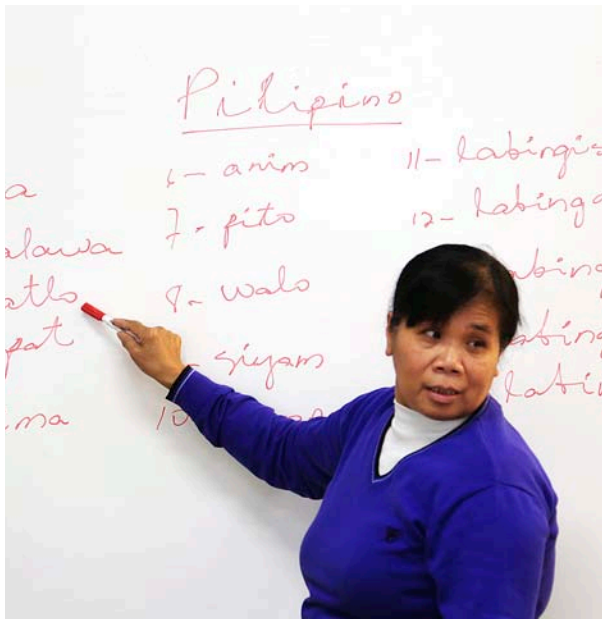 Pilipino
a
alawa
atlo
pat
ma
6- anim
7- pito
8- walo
- siyam
10
11- labingis
12- labinga
abing
ating
latin